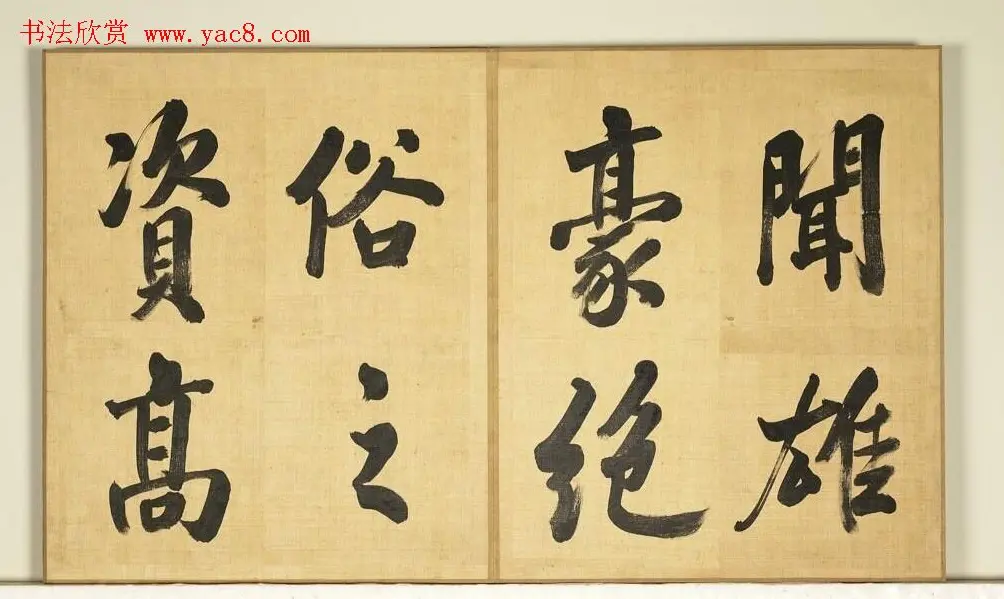 书法欣赏 www.yac8.com
聞雄
豪絕
俗之
資髙